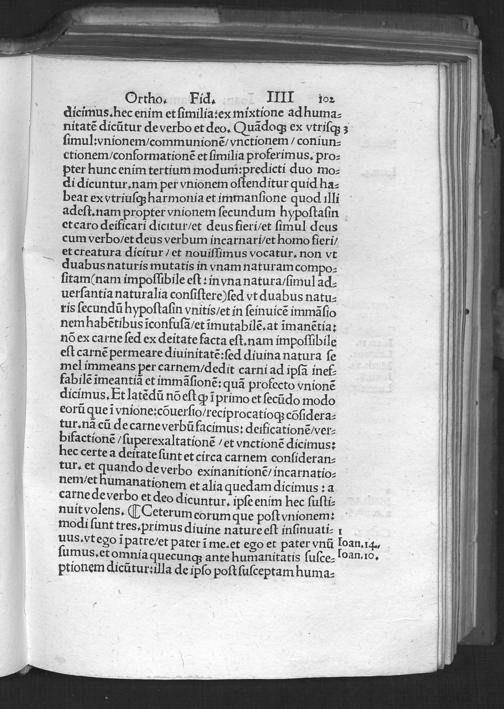 Ortho. Fid. IIII 102
dicimus. hec enim et similia: ex mixtione ad huma⸗
nitatē dicūtur de verbo et deo. Quādoqꝫ ex vtrisqꝫ 3
simul: vnionem/communionē/vnctionem/coniun⸗
ctionem/conformationē et similia proferimus. pro⸗
pter hunc enim tertium modum: predicti duo mo⸗
di dicuntur. nam per vnionem ostenditur quid ha⸗
beat ex vtriusqꝫ harmonia et immansione quod illi
adest. nam propter vnionem secundum hypostasin
et caro deificari dicitur/et deus fieri/et simul deus
cum verbo/et deus verbum incarnari/et homo fieri/
et creatura dicitur/et nouissimus vocatur. non vt
duabus naturis mutatis in vnam naturam compo⸗
sitam(nam impossibile est: in vna natura/simul ad⸗
uersantia naturalia consistere)sed vt duabus natu⸗
ris secundū hypostasin vnitis/et in seinuicē immāsio
nem habētibus īconfusā/et īmutabilē. at imanētia:
nō ex carne sed ex deitate facta est. nam impossibile
est carnē permeare diuinitatē: sed diuina natura se
mel immeans per carnem/dedit carni ad ipsā inef⸗
fabilē imeantiā et immāsionē: quā profecto vnionē
dicimus. Et latēdū nō est ꝙ ī primo et secūdo modo
eorū que ī vnione: cōuersio/reciprocatioqꝫ cōsidera⸗
tur. nā cū de carne verbū facimus: deificationē/ver⸗
bifactionē/superexaltationē/et vnctionē dicimus:
hec certe a deitate sunt et circa carnem consideran⸗
tur. et quando de verbo exinanitionē/incarnatio⸗
nem/et humanationem et alia quedam dicimus: a
carne de verbo et deo dicuntur. ipse enim hec susti⸗
nuit volens. ⸿ Ceterum eorum que post vnionem:
modi sunt tres. primus diuine nature est insinuati⸗ 1
uus. vt ego ī patre/et pater ī me. et ego et pater vnū Ioan. 14.
sumus. et omnia quecunqꝫ ante humanitatis susce⸗ Ioan. 10.
ptionem dicūtur: illa de ipso post susceptam huma⸗